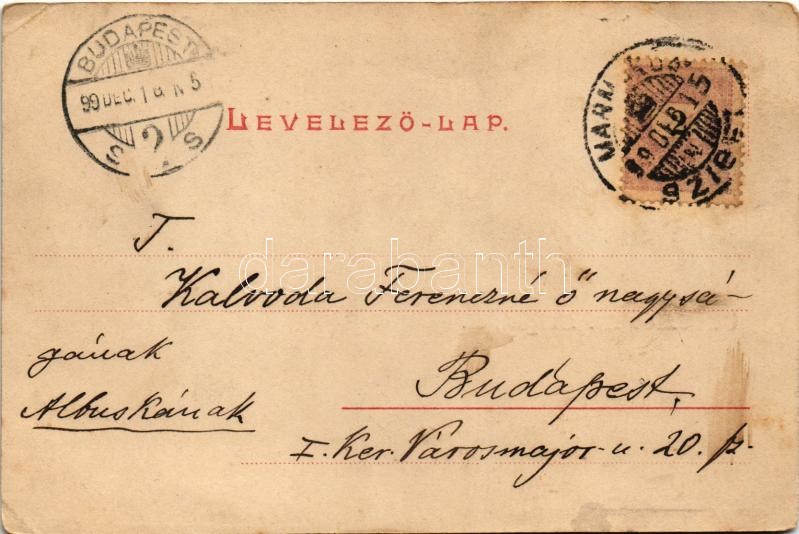 BUDAPEST
99 DEC. 16. N 5
2
S S
LEVELEZŐ-LAP.
99 DEC 15
SZIGET
T.
Kalvoda Ferenczné ő nagysá-
gának
Albuskának
Budapest,
I. Ker. Városmajor-u. 20. sz.
darabanth